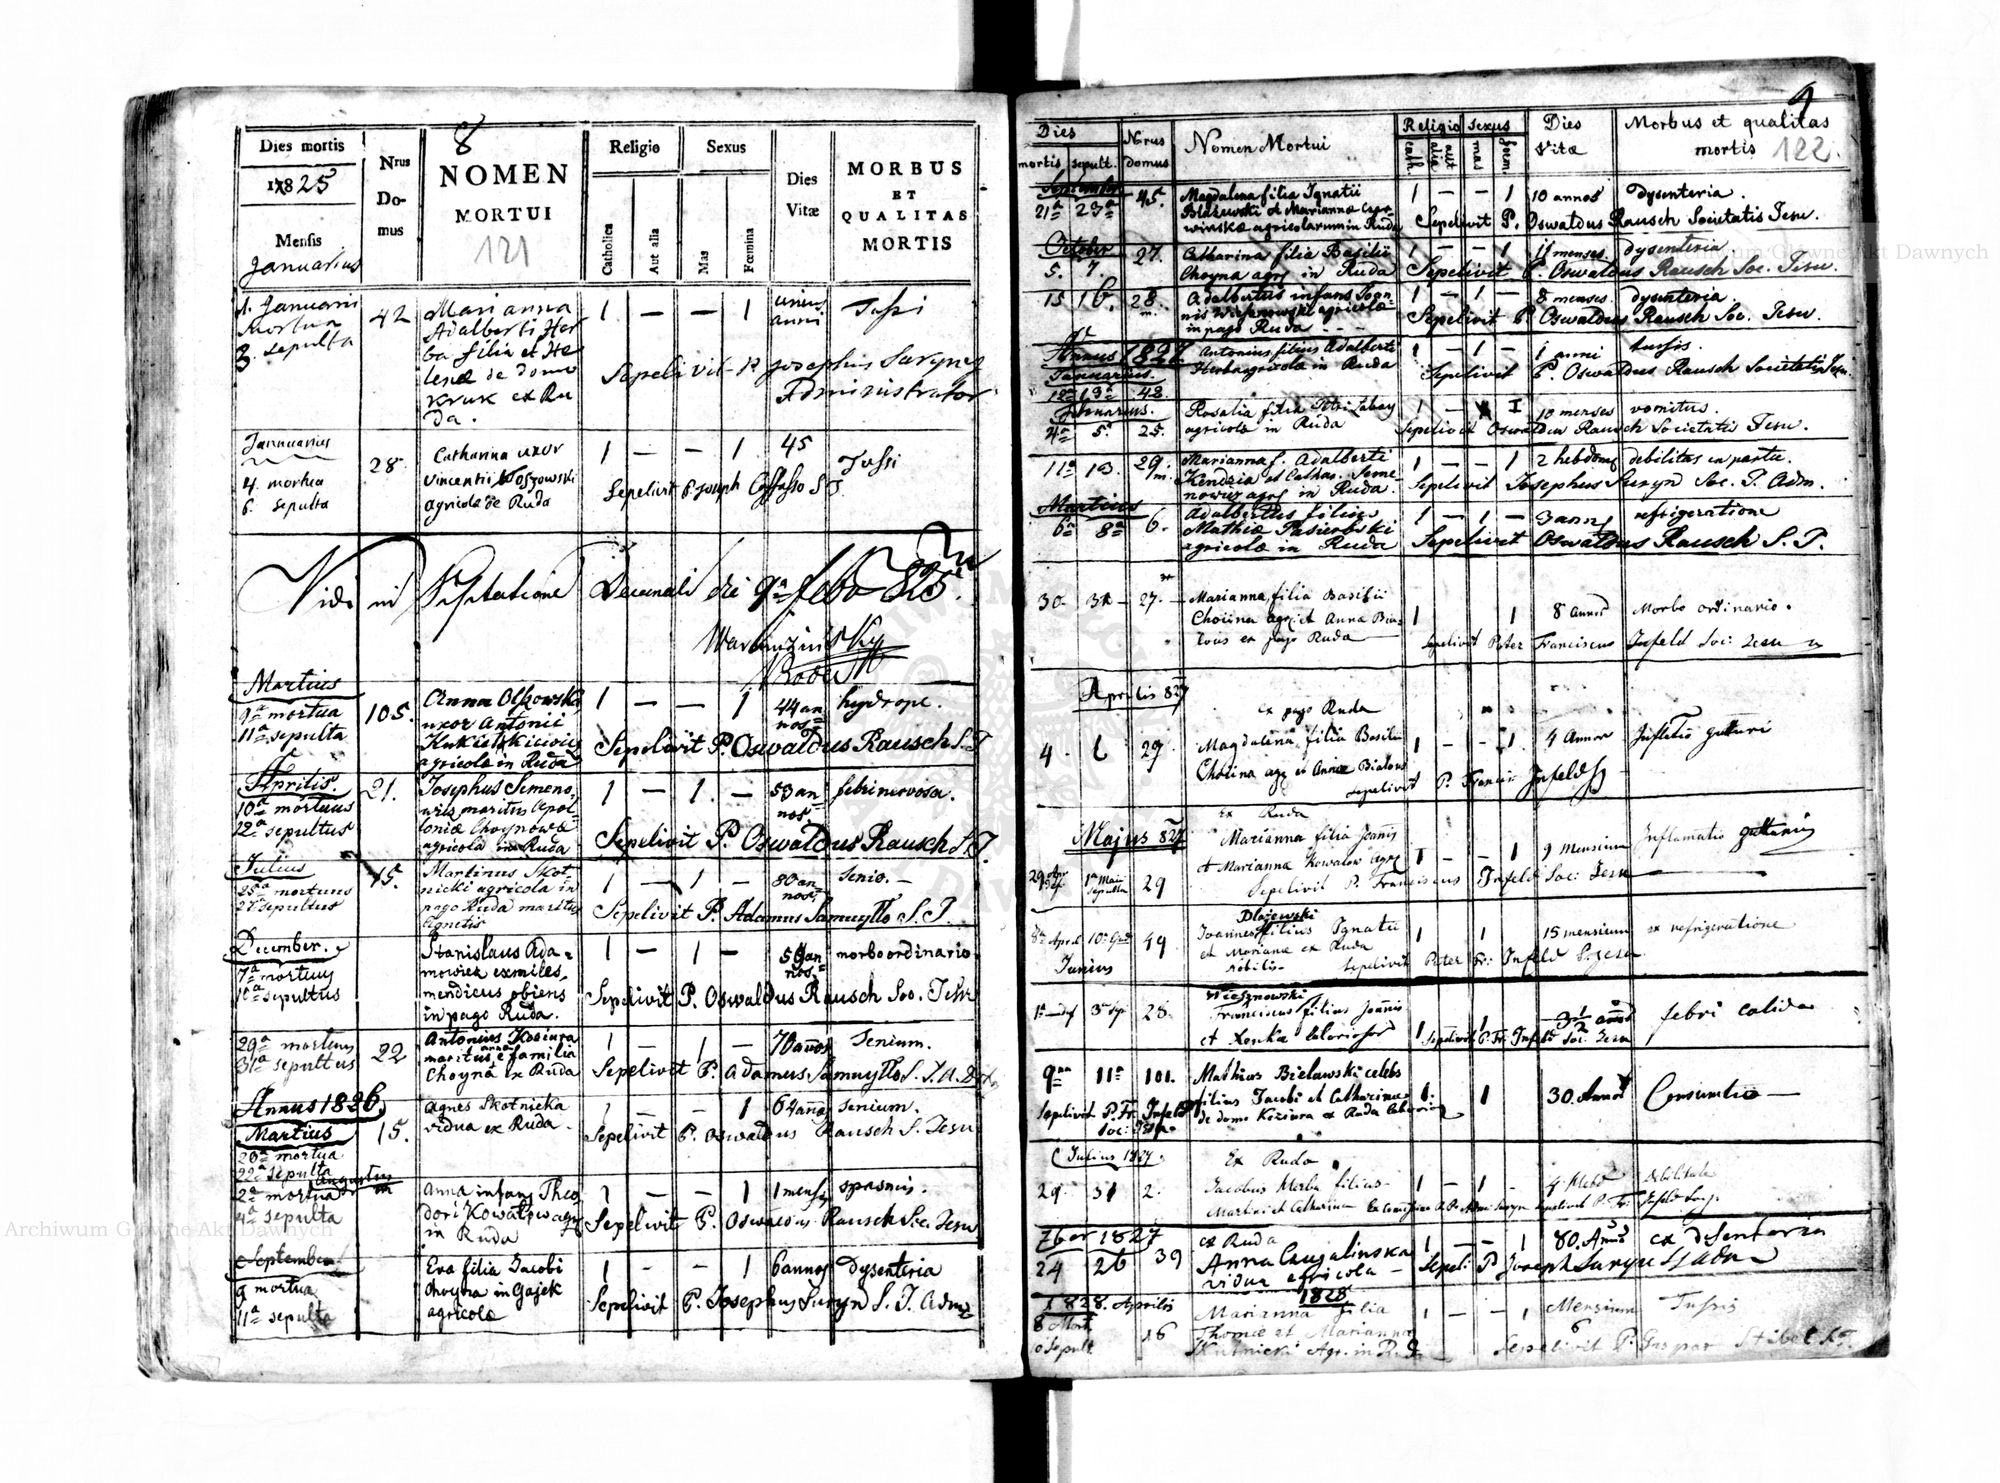 8
Dies mortis
1825
Mensis
Januarius
Nrus
Do-
mus
NOMEN
MORTUI
121
Religio
Catholica
Aut alia
Sexus
Mas
Fœmina
Dies
Vitæ
MORBUS
ET
QUALITAS
MORTIS
1. Januarii
mortua
3. sepulta
42
Marianna
Adalberti Her
ba filia et He
lenæ de domo
Kruk ex Ru
da.
1 — — 1
unius
anni
Tussi
Sepelivit P. Josephus Suryn
Administrator
Jannuarius
4. mortua
6. sepulta
28
Catharina uxor
Vincentii
agricola de Ruda
1 — — 1
45
Tussi
Sepelivit P. Joseph Cossasso S J
Vidi in Visitatione Decanali die 9a febr 825
Martius
9a mortua
11a sepulta
105.
Anna Olszowska
uxor Antonii
agricola in Ruda
1 — — 1
44 an
nos
hydrope.
Sepelivit P. Oswaldus Rausch S. J
Aprilis.
10a mortuus
12a sepultus
21.
Josephus Semeno-
wicz maritus Apol-
loniæ Choynowæ
agricola in Ruda
1 — 1 —
53 an-
nos.
febri nervosa.
Sepelivit P. Oswaldus Rausch S. J.
Julius
25a mortuus
27a sepultus
15.
Martinus Skot-
nicki agricola in
pago Ruda maritus
Agnetis
1 — 1 —
80 an-
nos
senio. —
Sepelivit P. Adamus Samuyłło S. J.
December.
7a mortuus
10a sepultus
Stanislaus Ada-
mowicz exmiles,
mendicus obiens
in pago Ruda.
1 — 1 —
59 an-
nos.
morbo ordinario
Sepelivit P. Oswaldus Rausch Soc. Jesu
29a mortuus
31a sepultus
22
Antonius Koziura
maritus Anna e familia
Choyna ex Ruda
1 — 1 —
70 annos
senium.
Sepelivit P. Adamus Samuyłło S. J. A.
Annus 1826.
Martius
20a mortua
22a sepulta
15.
Agnes Skotnicka
vidua ex Ruda
1 — — 1
64 anno
senium.
Sepelivit P. Oswaldus Rausch S. Jesu
Augustus
2a mortua
4a sepulta
Anna infans Theo
dori Kowal
in Ruda
1 — — 1
1 mensis
spasmis.
Sepelivit P. Oswaldus Rausch Soc. Jesu
September
9 mortua
11a sepulta
Eva filia Jacobi
Choyna in Gajek
agricolæ
1 - - 1
6 annos
Dysenteria
Sepelivit P. Josephus Suryn S. J. Adm
9
Dies
mortis
sepult.
Nrus
domus
Nomen Mortui
Religio
cath.
aut alia
Sexus
mas
foem
Dies
Vitæ
Morbus et qualitas
mortis
122.
September
21a 23a
45.
Magdalena filia Ignatii
Błażewski et Mariannæ
winskæ agricolarum in Ruda
1 — — 1
10 annos
dysenteria
Sepelivit P. Oswaldus Rausch Societatis Jesu.
October
5. 7.
27.
Catharina filia Basilii
Choyna agr in Ruda
1 — — 1
11 menses
dysenteria
Sepelivit P. Oswaldus Rausch Soc. Jesu.
15 16.
28.
Adalbertus infans Joan-
nis agricolæ
in pago Ruda
1 — 1 —
8 menses.
dysenteria.
Sepelivit P. Oswaldus Rausch Soc. Jesu.
Annus 1827.
Januarius
12a 13a 42
Antonius filius Adalberti
Herba agricolæ in Ruda
1 — 1 —
1 anni
tussis.
Sepelivit P. Oswaldus Rausch Societatis Jesu.
Februarius.
4a 5. 25.
Rosalia filia Petri
agricolæ in Ruda
1 — 1
10 menses
vomitus.
Sepelivit Oswaldus Rausch Societatis Jesu.
11a 13. 29.
Marianna f. Adalberti
Kendzia et Cathar. Seme
nowicz agr in Ruda.
1 — — 1
2 hebdom
debilitas in partu.
Sepelivit Josephus Suryn Soc. J. Adm.
Martius
6a 8a 6.
Adalbertus filius
Mathiæ Pasierbski
agricolæ in Ruda
1 — 1 —
3 ann
refrigeratione
Sepelivit Oswaldus Rausch S. J.
30. 31 — 27.
Marianna filia Basilii
Choina agr et Anna Bia-
lous ex pago Ruda
1 1
8 annos
Morbo ordinario.
Sepelivit Pater Franciscus Infeld Soc: Jesu
Aprilis 827
4 6 29
ex pago Ruda
Magdalena filia Basilii
Choina agr et Annæ Bialous
1 — — 1
4 Annos
Inflatio gutturi
sepelivit P. Francis Infeld SJ
Majus 827
29 1a Maii
sepulta
29
Ex Ruda
Marianna filia Joannis
et Marianna Kowalow agr
1 — — 1
9 Mensium
Inflamatio gutturis
Sepelivit P. Franciscus Infeld Soc: Jesu
8a April 10a 49
Błażewski
Joannes filius Ignatii
et Mariannæ ex Ruda
nobilis
1 1
15 mensium
ex refrigeratione
Sepelivit Pater Fr: Infeld S. Jesu
Junius
1a 3a Sep 28.
Franciscus filius Joannis
et
1 1
3 1/2 annos
febri calida
Sepelivit P. Fr. Infeld Soc. Jesu
9na 11a 101.
Mathias Bielawski celebs
filius Jacobi et Catharinæ
de domo Koziura ex Ruda
1. 1
30. Annos
Consumtio —
Sepelivit P. Fr. Infeld
Soc: Jesu
Julius 1827.
29. 31 2.
Ex Ruda
Jacobus Herba filius
Martini et Catharinæ
1 — 1 -
4 Hebd
Debilitate
7ber 1827
24 26 39
ex Ruda
Anna Czugalinska
vidua agricola —
1 — — 1
80. Ann
ex desenteria
Sepeli P Joseph Suryn SJ Adm
1828. Aprilis
8 Mort
Sepult
16
1828
Marianna filia
Thomæ et Marianna
Skutnicki Agr. in Ruda
1 — — 1
Mensium
6
Tussis
Sepelivit P. Gaspar S.J.
Archiwum Główne Akt Dawnych
Archiwum Główne Akt Dawnych